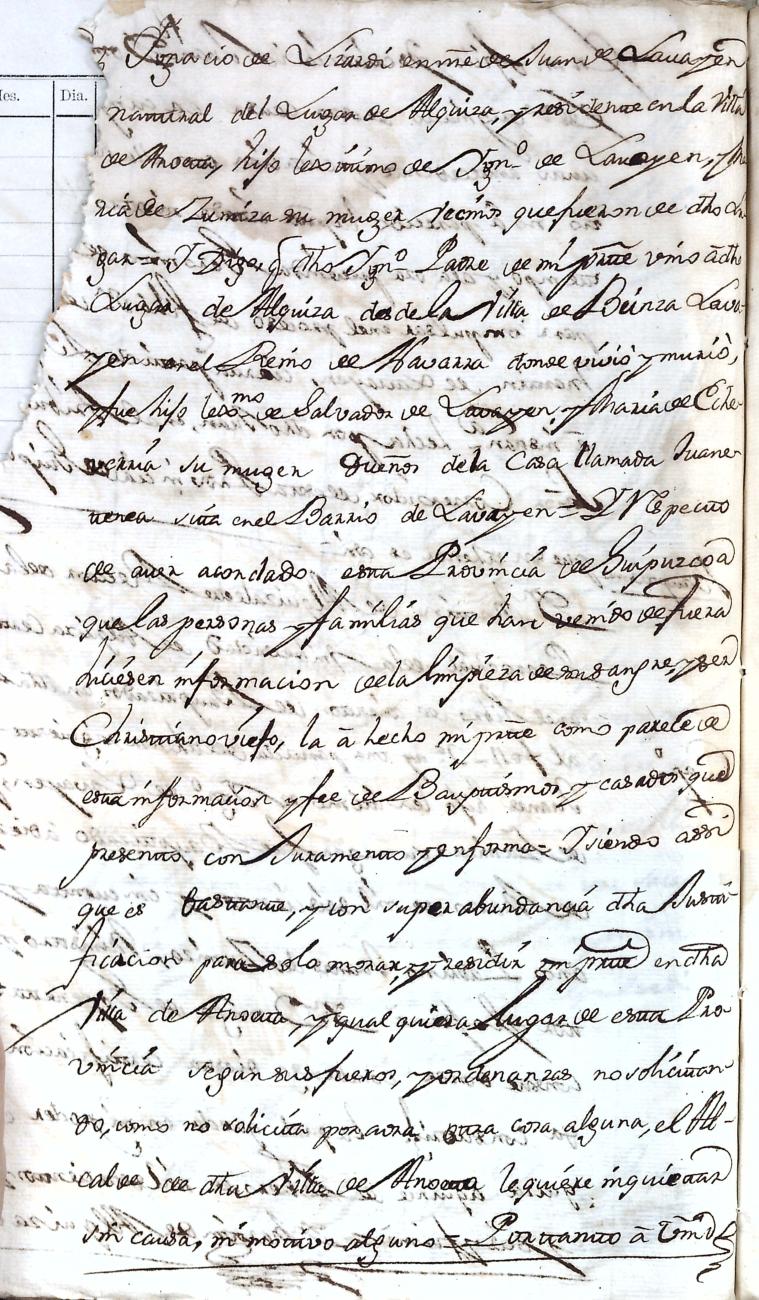 Ignacio de Lizardi en nre de Juan de Lavayen
natural del Lugar de Alquiza, y residente en la Villa
les. Dia.
de Anoeta, hijo lexitimo de Ygn.º de Lavayen, y Ma
ria de Zumiza su muger vecinos que fueron de dho Lu
gar = Y Digo, q dho Ygn.º Padre de mi prte vino à dho
Lugar de Alquiza desde la Villa de Beinza Lava-
yen en el Reino de Navarra donde vivió y murió,
y fue hijo lexmo de Salvador de Lavayen, y Maria de Eche-
verria su muger Dueños de la Casa llamada Juane-
nerea sita en el Barrio de Lavayen = Y Respecto
de aver acordado esta Provincia de Guipuzcoa
que las personas y familias que han venido de fuera
hiciesen informacion de la limpieza de su sangre, y ser
Christiano viejo, la à hecho mi prte como parece de
esta informacion y fee de Bauptismos y casados que
presento, con Juramento y en forma = Y siendo assi
que es bastante, y con superabundancia dha Justi-
ficacion para solo morar, y residir mi prte en dha
Villa de Anoeta, y qual quiera Lugar de esta Pro-
vincia segun sus fueros, y ordenanzas no solicitan-
do, como no solicita por aora otra cosa alguna, el Al-
calde de dha Villa de Anoeta le quiere inquietar
sin causa, ni motivo alguno = Por tanto à Vmd